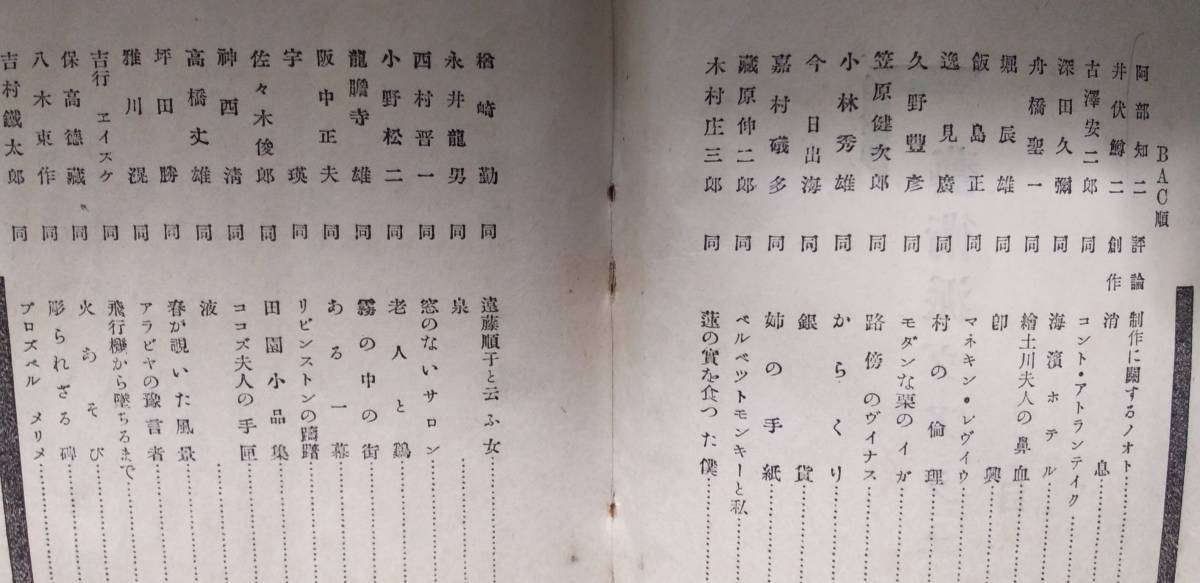 BAC順
阿部知二 評論 制作に關するノオト
井伏鱒二 創作 消息
古澤安二郎 同 コント・アトランテイク
深田久彌 同 海濱ホテル
舟橋聖一 同 繪土川夫人の鼻血
堀辰雄 同 卽興
飯島正 同 マネキン・レヴイウ
逸見廣 同 村の倫理
久野豐彥 同 モダンな栗のイガ
笠原健次郎 同 路傍のヴイナス
小林秀雄 同 からくり
今日出海 同 銀貨
嘉村礒多 同 姉の手紙
藏原伸二郎 同 ベルベツトモンキーと私
木村庄三郎 同 蓮の實を食つた僕
楢崎勤 同 遠藤順子と云ふ女
永井龍男 同 泉
西村晋一 同 窓のないサロン
小野松二 同 老人と鷄
龍膽寺雄 同 霧の中の街
阪中正夫 同 ある一幕
宇瑛 同 リビンストンの躊躇
佐々木俊郎 同 田園小品集
神西清 同 ココズ夫人の手匣
高橋丈雄 同 液
坪田勝 同 春が說いた風景
雅川滉 同 アラビヤの豫言者
吉行エイスケ 同 飛行機から墜ちるまで
保高德藏 同 火あそび
八木東作 同 彫られざる碑
吉村鐵太郎 同 プロズペル メリメ